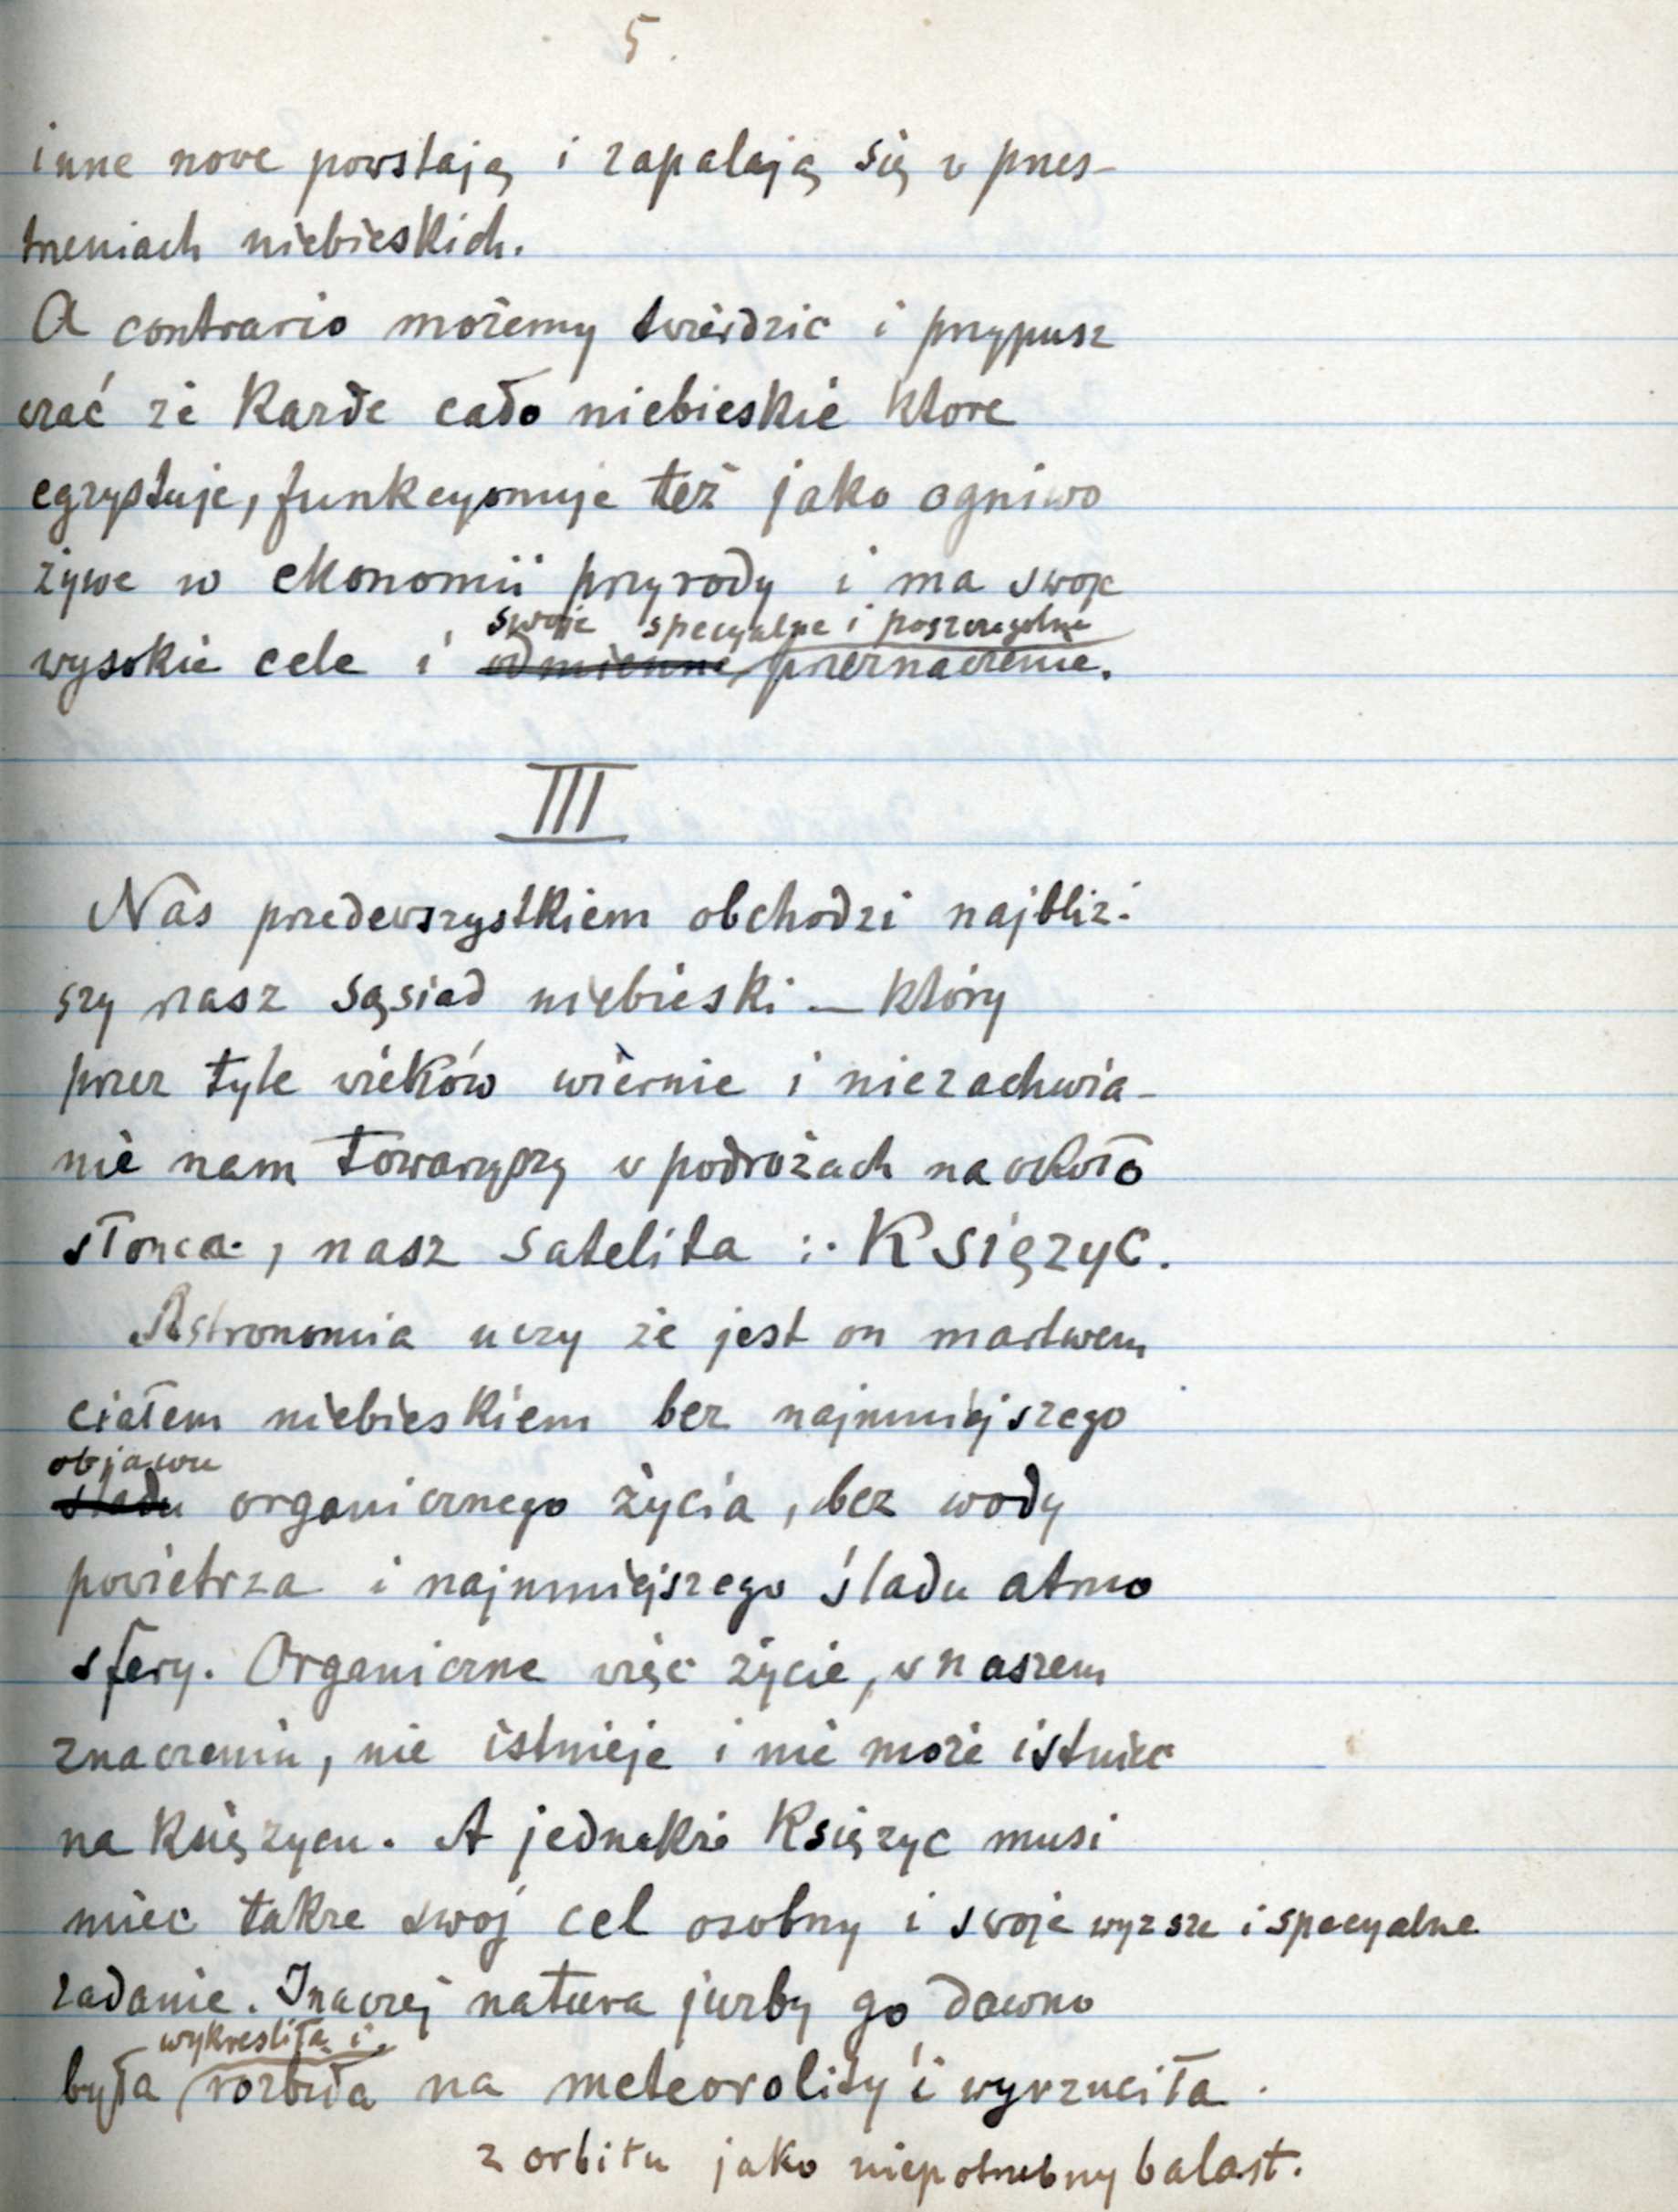 5.
inne nowe powstają i zapalają się w przes-
trzeniach niebieskich.
A contrario możemy twierdzic i przypusz
czać że Każde cało niebieskie ktore
egzystuje, funkcyonuje też jako ogniwo
żywe w ekonomii przyrody i ma swoje
swoje specyalne i poszczególne
wysokie cele i odmienne przeznaczenie.
III
Nas przedewszystkiem obchodzi najbliż-
szy nasz sąsiad niebieski — który
przez tyle wieków wiernie i niezachwia-
nie nam towarzyszy w podrożach naokoło
słonca, nasz satelita :. Księzyc.
Astronomia uczy że jest on martwem
ciałem niebieskiem bez najmniejszego
objawu
śladu organicznego życia, bez wody
powietrza i najmniejszego śladu atmo
sfery. Organiczne więc życie, w naszem
znaczeniu, nie istnieje i nie może istniec
na księzycu. A jednakże Księzyc musi
miec takze swoj cel osobny i swoje wyzsze i specyalne
zadanie. Inaczej natura jużby go dawno
wykresliła i
była rozbiła na meteorolity i wyrzuciła
z orbitu jako niepotrzebny balast.